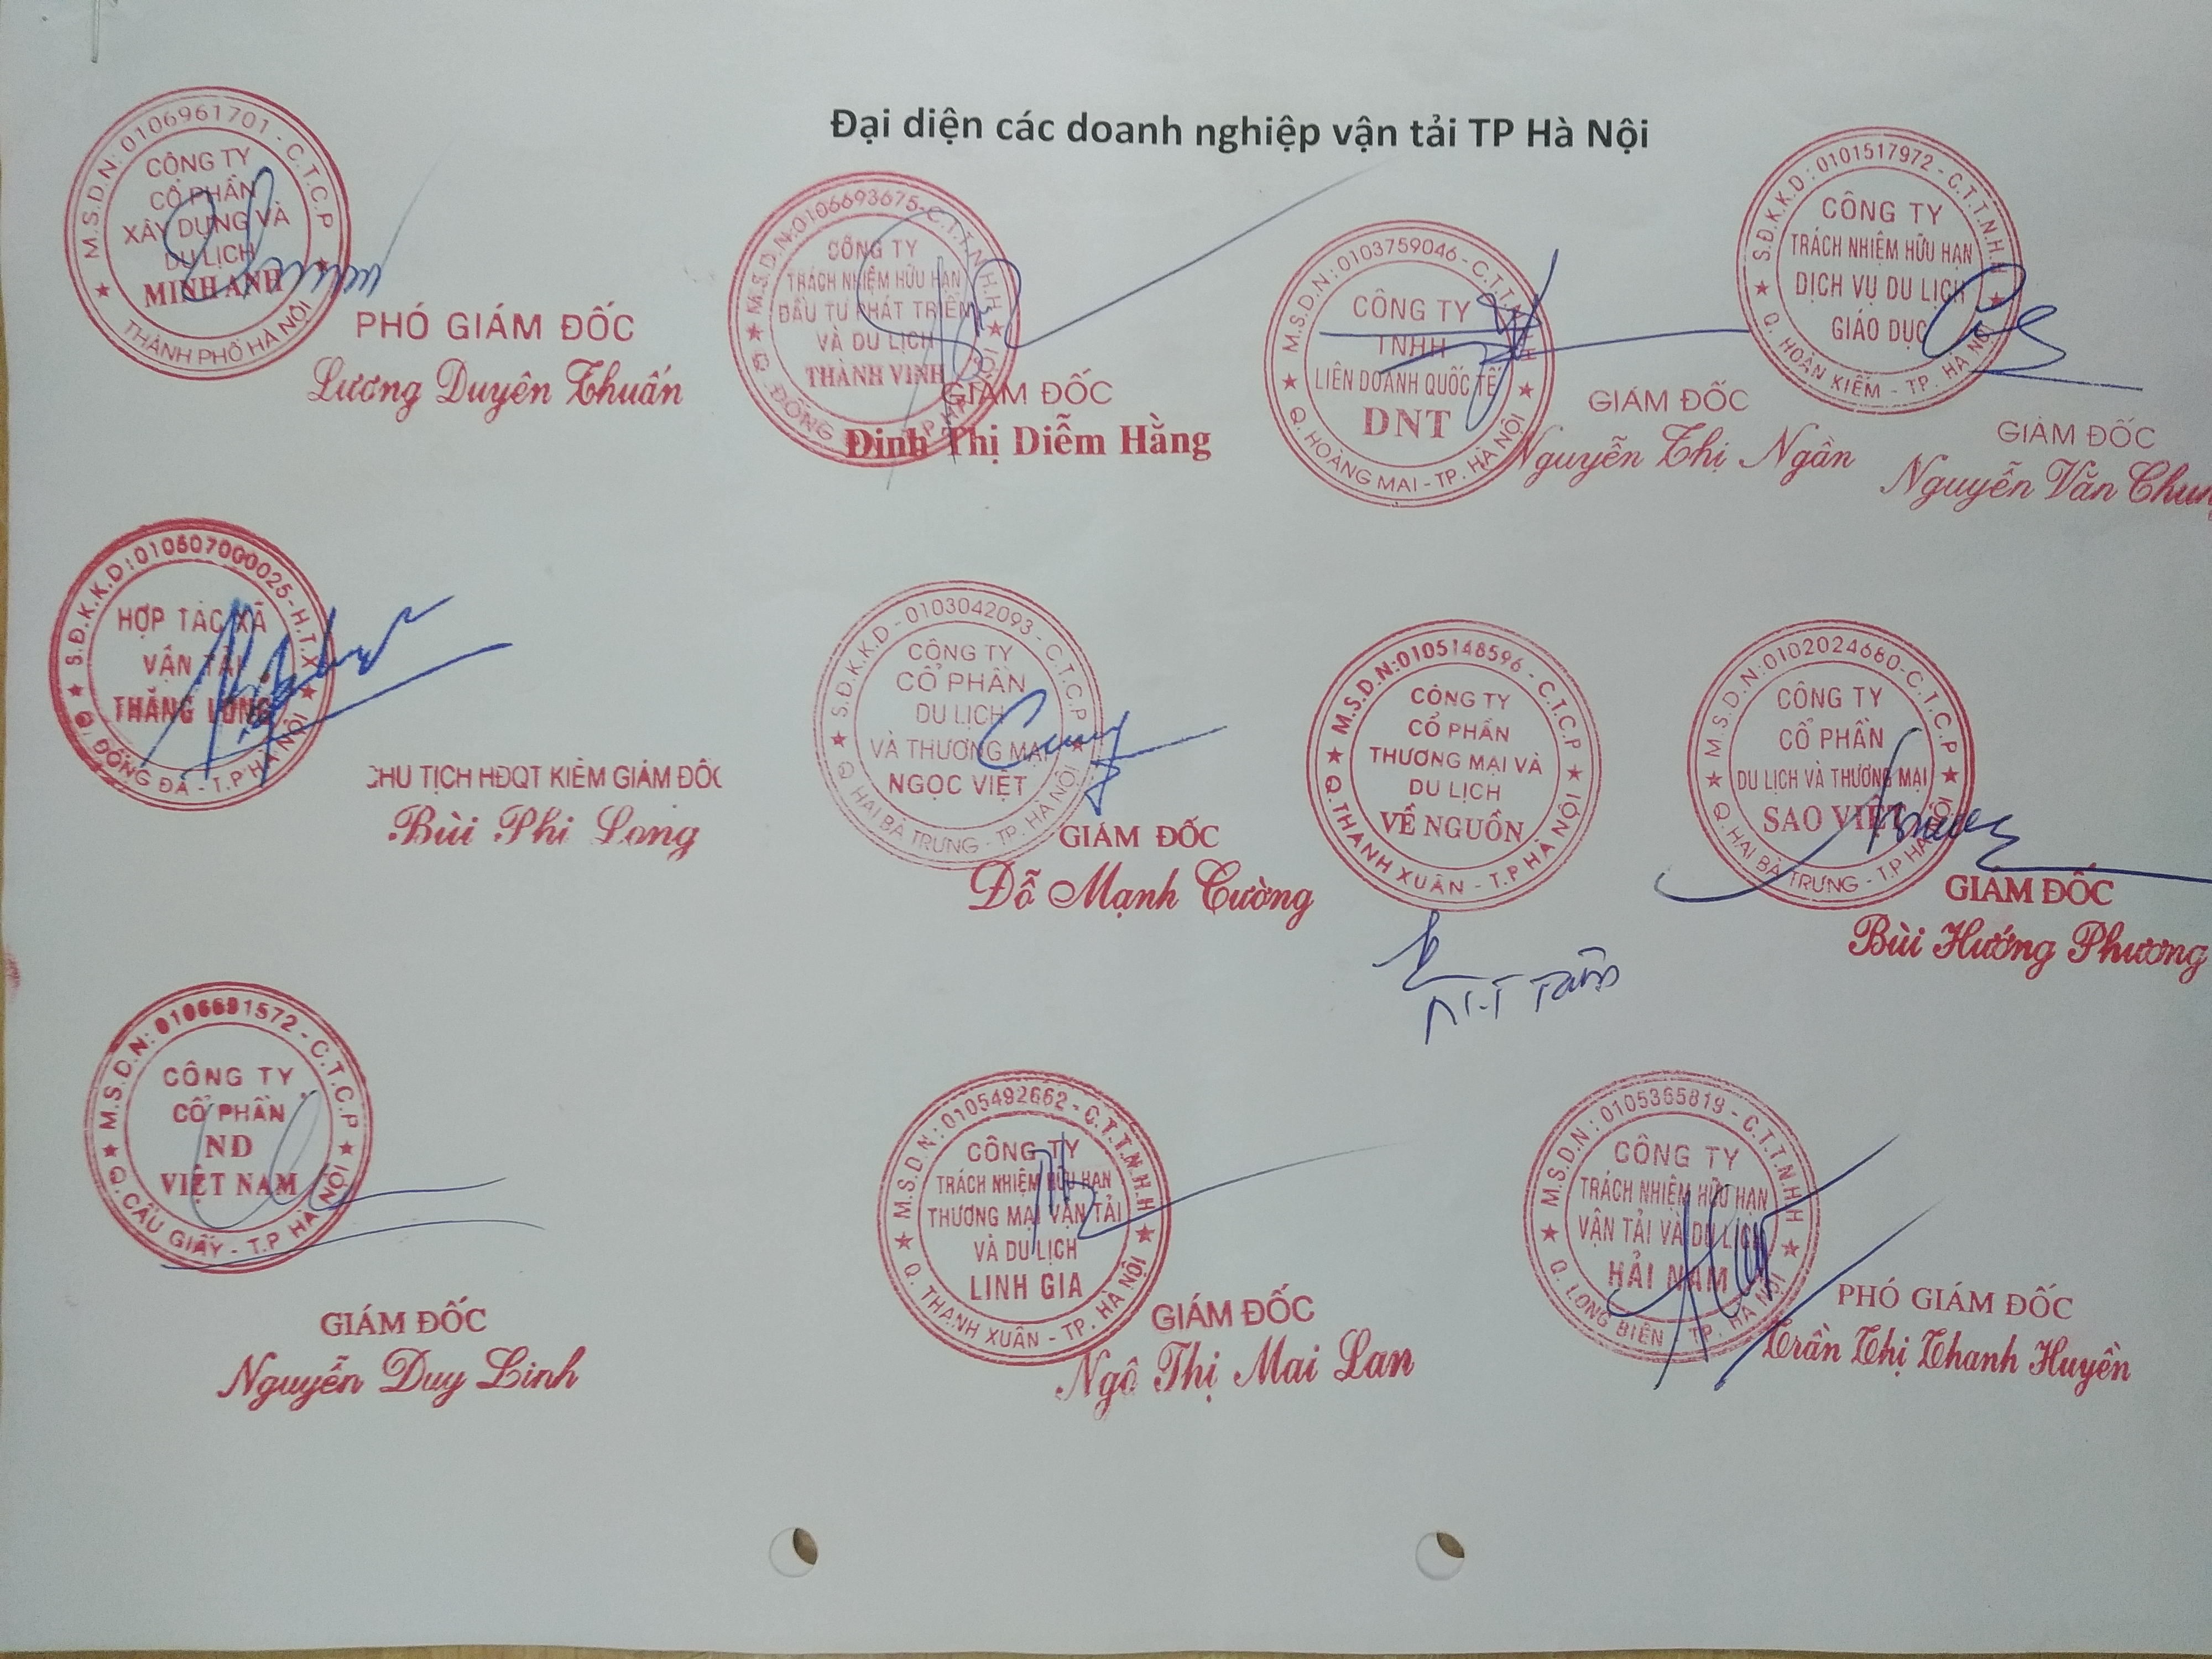 Đại diện các doanh nghiệp vận tải TP Hà Nội
M.S.D.N: 0106961701 - C.T.C.P
CÔNG TY
CỔ PHẦN
XÂY DỰNG VÀ
DU LỊCH
MINH ANH
THÀNH PHỐ HÀ NỘI
PHÓ GIÁM ĐỐC
Lương Duyên Thuấn
M.S.D.N: 0106693675 - C.T.T.N.H.H
CÔNG TY
TRÁCH NHIỆM HỮU HẠN
ĐẦU TƯ PHÁT TRIỂN
VÀ DU LỊCH
THÀNH VINH
Q. ĐỐNG
GIÁM ĐỐC
Đinh Thị Diễm Hằng
M.S.D.N: 0103759046 - C.T.T.N.H.H
CÔNG TY
TNHH
LIÊN DOANH QUỐC TẾ
DNT
Q. HOÀNG MAI - TP. HÀ NỘI
GIÁM ĐỐC
Nguyễn Thị Ngần
S.Đ.K.K.D: 0101517972 - C.T.T.N.H.H
CÔNG TY
TRÁCH NHIỆM HỮU HẠN
DỊCH VỤ DU LỊCH
GIÁO DỤC
Q. HOÀN KIẾM - TP. HÀ NỘI
GIÁM ĐỐC
Nguyễn Văn Chung
S.Đ.K.K.D: 010507000025 - H.T.X
HỢP TÁC XÃ
VẬN TẢI
THĂNG LONG
Q. ĐỐNG ĐA - T.P HÀ NỘI
CHỦ TỊCH HĐQT KIÊM GIÁM ĐỐC
Bùi Phi Long
S.Đ.K.K.D - 0103042093 - C.T.C.P
CÔNG TY
CỔ PHẦN
DU LỊCH
VÀ THƯƠNG MẠI
NGỌC VIỆT
Q HAI BÀ TRƯNG - TP. HÀ NỘI
GIÁM ĐỐC
Đỗ Mạnh Cường
M.S.D.N: 0105148596 - C.T.C.P
CÔNG TY
CỔ PHẦN
THƯƠNG MẠI VÀ
DU LỊCH
VỀ NGUỒN
Q. THANH XUÂN - T.P HÀ NỘI
M.S.D.N: 0102024680 - C.T.C.P
CÔNG TY
CỔ PHẦN
DU LỊCH VÀ THƯƠNG MẠI
SAO VIỆT
Q. HAI BÀ TRƯNG - T.P HÀ NỘI
GIÁM ĐỐC
Bùi Hướng Phương
M.S.D.N: 0106691572 - C.T.C.P
CÔNG TY
CỔ PHẦN
ND
VIỆT NAM
Q. CẦU GIẤY - T.P HÀ NỘI
GIÁM ĐỐC
Nguyễn Duy Linh
M.S.D.N: 0105492662 - C.T.T.N.H.H
CÔNG TY
TRÁCH NHIỆM HỮU HẠN
THƯƠNG MẠI VẬN TẢI
VÀ DU LỊCH
LINH GIA
Q. THANH XUÂN - TP. HÀ NỘI
GIÁM ĐỐC
Ngô Thị Mai Lan
M.S.D.N: 0105365819 - C.T.T.N.H.H
CÔNG TY
TRÁCH NHIỆM HỮU HẠN
VẬN TẢI VÀ DU LỊCH
HẢI NAM
Q. LONG BIÊN TP. HÀ NỘI
PHÓ GIÁM ĐỐC
Trần Thị Thanh Huyền